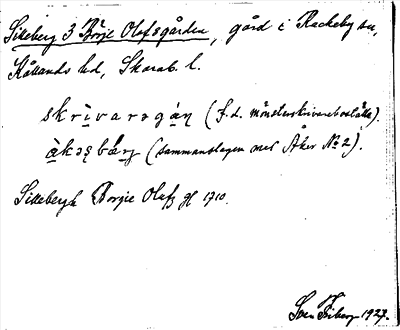 Silleberg 3 Börje Olofsgården, gård i Rackeby sn,
Kållands hd, Skarab. l.
skrìvarǝgán (f.d. mönsterskrivareboställe).
àkǝʂbærj (sammanslagen med Åker No 2).
Sillebergh Borgie Olofz gl 1710.
Sven Friberg 1927.